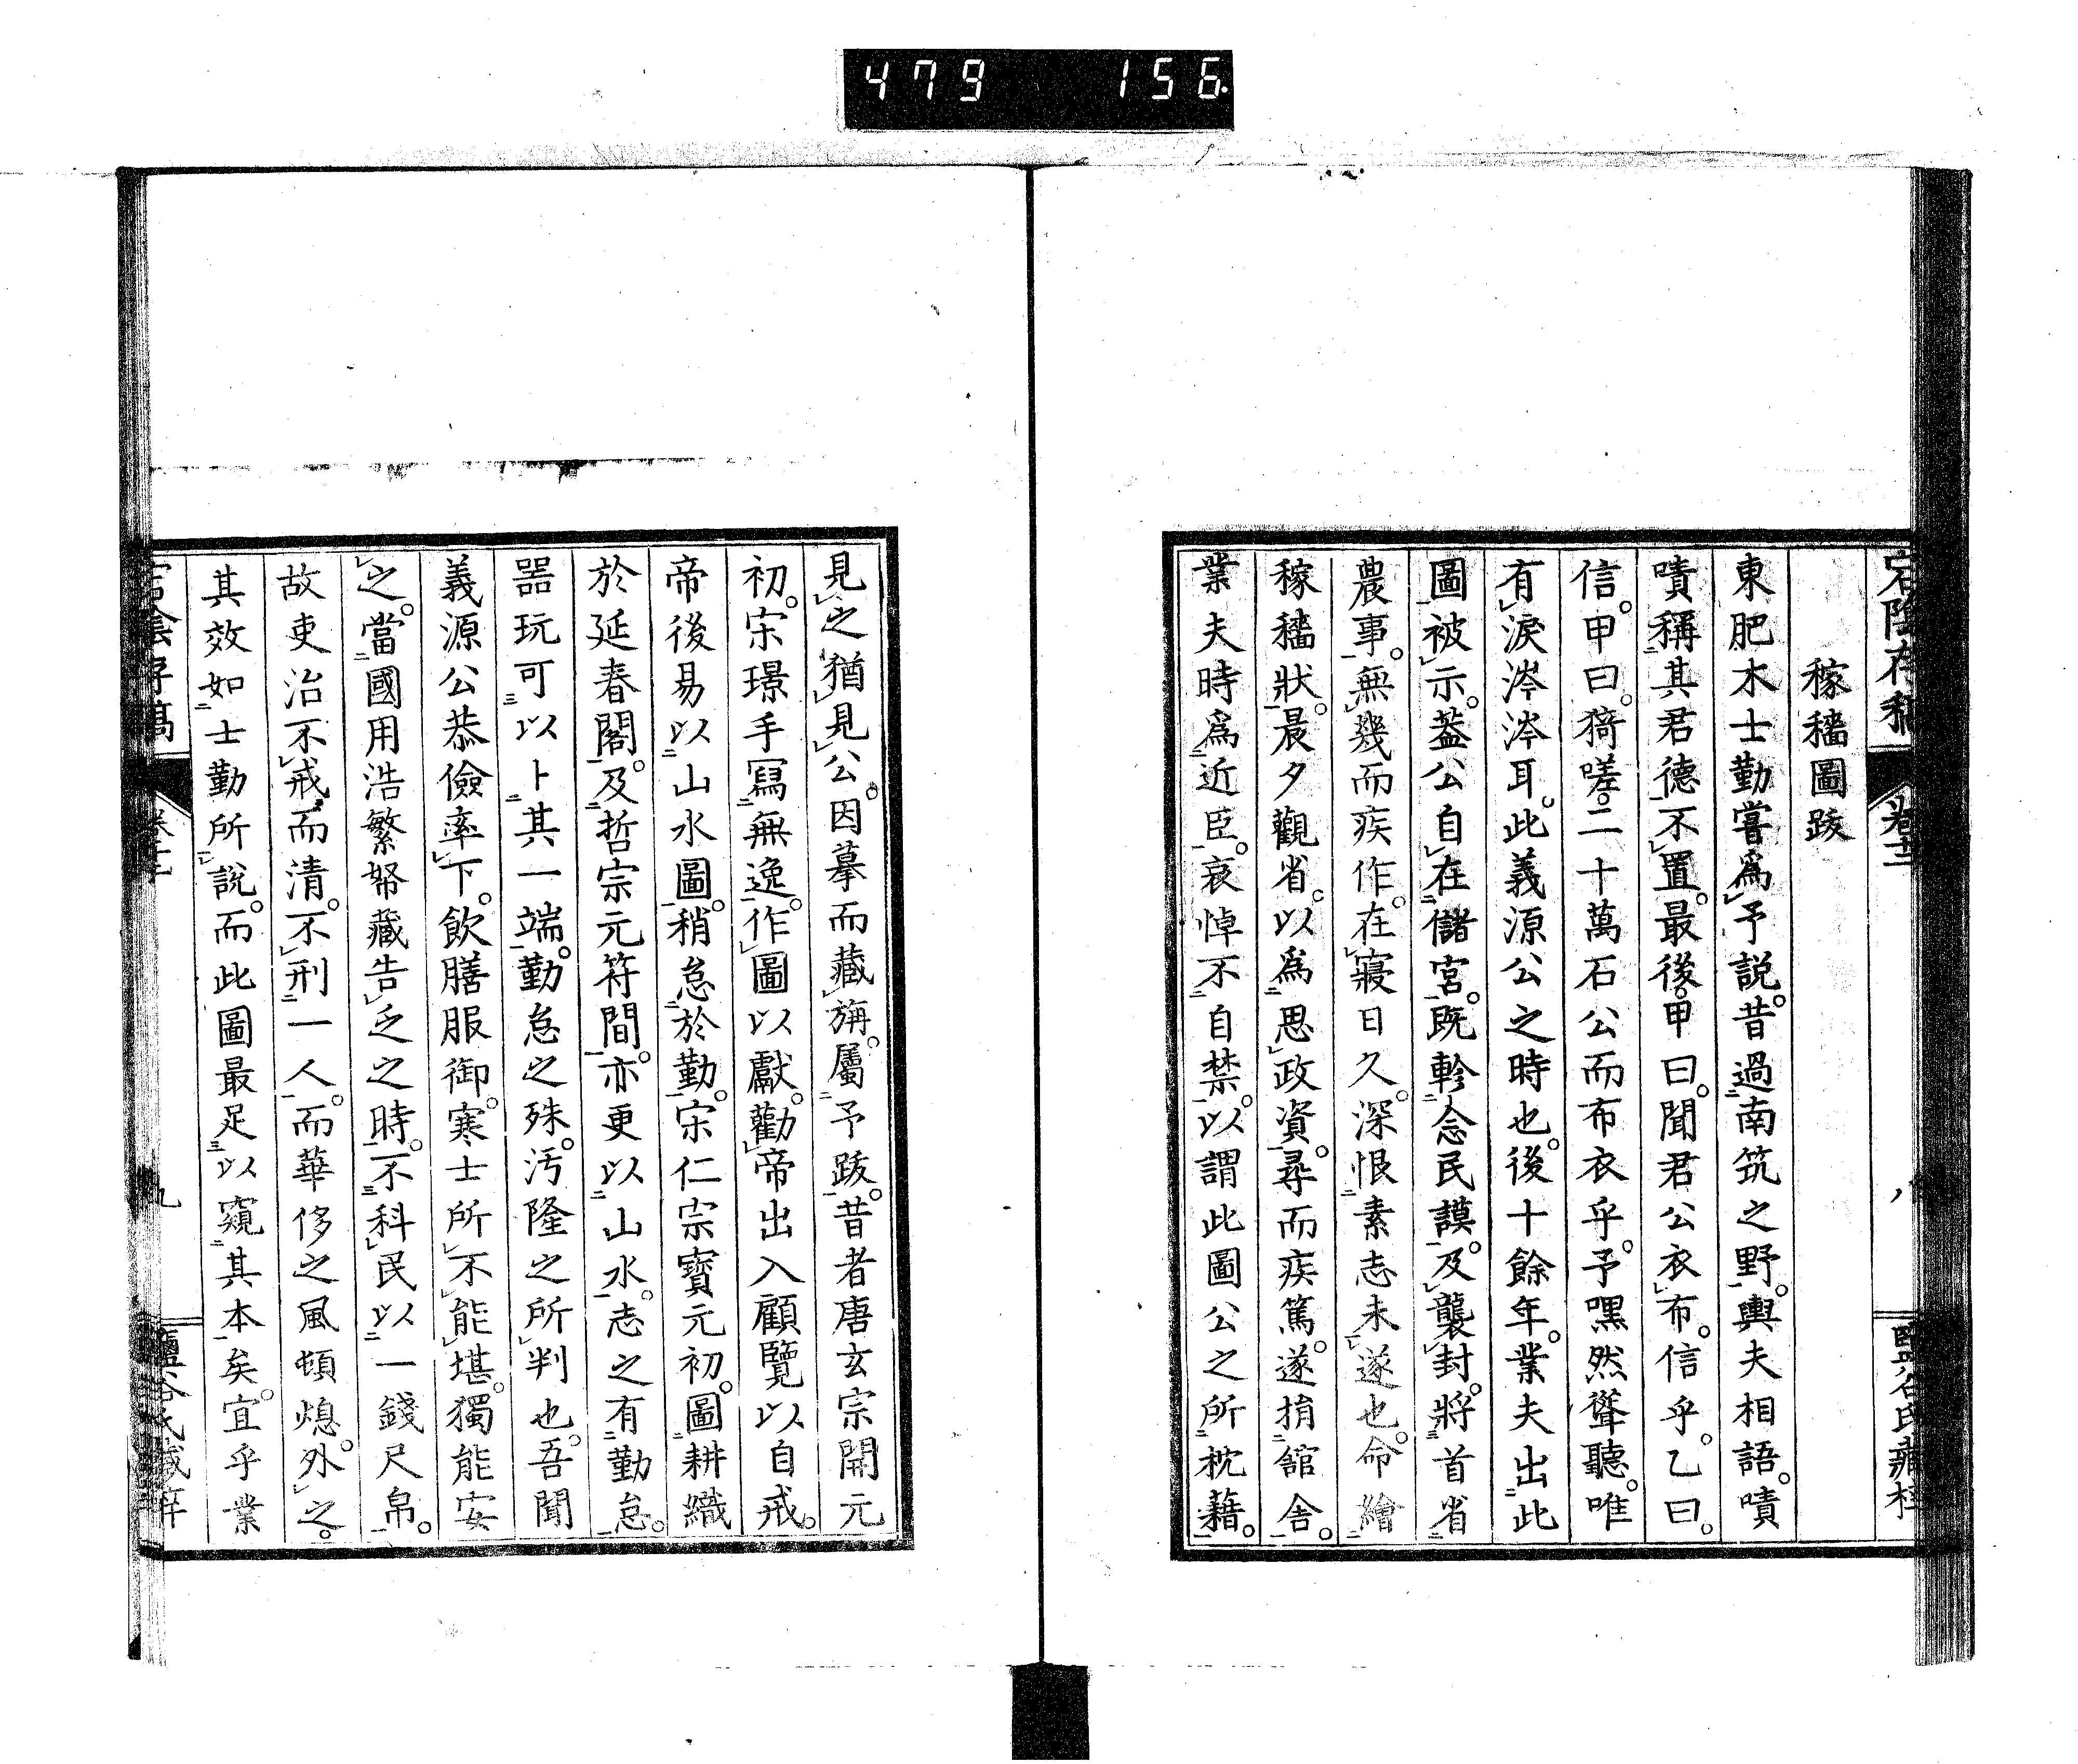 479 156
稼穡圖跋
東肥木士勤嘗爲予説。昔過南筑之野。輿夫相語。嘖
嘖稱其君德不置。最後。甲曰。聞君公衣布。信乎。乙曰。
信。甲曰。猗嗟。二十萬石公而布衣乎。予嘿然聳聽。唯
有淚涔涔耳。此義源公之時也。後十餘年。業夫出此
圖被示。葢公自在儲宮。既軫念民謨。及襲封。將首省
農事。無幾而疾作。在寢日久。深恨素志未遂也。命繪
稼穡狀。晨夕觀省。以爲思政資。尋而疾篤。遂捐舘舎。
業夫時爲近臣。哀悼不自禁。以謂此圖公之所枕藉。
見之猶見公。因摹而藏旃。屬予跋。昔者唐玄宗開元
初。宋璟手寫無逸。作圖以獻。勸帝出入顧覽以自戒。
帝後易以山水圖。稍怠於勤。宋仁宗寶元初。圖耕織
於延春閣。及哲宗元符間。亦更以山水。志之有勤怠。
器玩可以卜其一端。勤怠之殊。汚隆之所判也。吾聞
義源公恭儉率下。飲膳服御。寒士所不能堪。獨能安
之。當國用浩繁帑藏告乏之時。不科民以一錢尺帛。
故吏治不戒而清。不刑一人。而華侈之風頓熄。外之。
其效如士勤所說。而此圖最足以窺其本矣。宜乎業